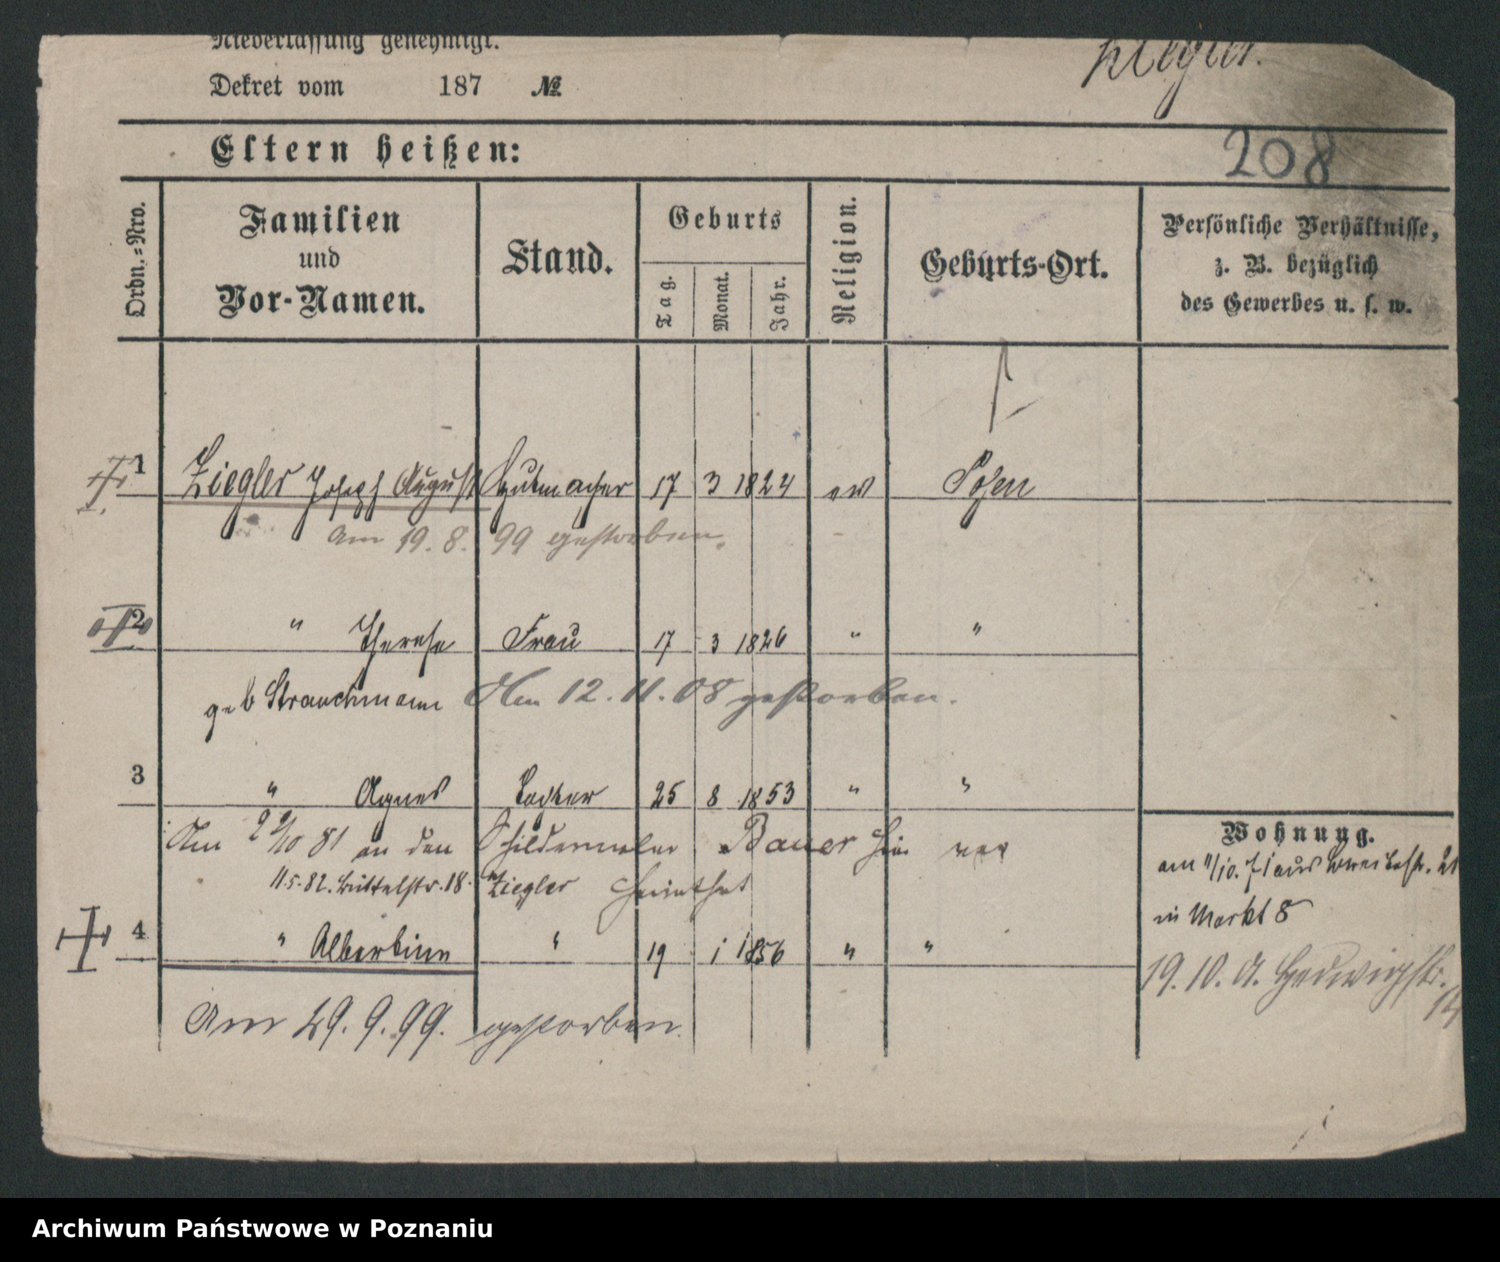 Niederlassung genehmigt.
Ziegler.
Dekret vom 187 №
Eltern heißen:
208
Ordn.-Nro.
Familien
und
Vor-Namen.
Stand.
Geburts
Tag.
Monat.
Jahr.
Religion.
Geburts-Ort.
Persönliche Verhältnisse,
z. B. bezüglich
des Gewerbes u. s. w.
1 Ziegler Joseph August Hutmacher 17 3 1824 ev Posen
Am 19. 8. 99 gestorben.
2 " Therese Frau 17 3 1826 " "
geb Strauchmann Am 12. 11. 08 gestorben.
3 " Agnes Tochter 25 8 1853 " "
Am 10 81 an den Schildermaler Bauer hier ver
11.5.82. Büttelstr. 18. Ziegler heirathet
4 " Albertine " 19 1 1856 " "
Am 29. 9. 99. gestorben.
Wohnung.
am 1/10. 71 aus Breitestr. 21
in Markt 8
19. 10. 0. Hedwigstr.
14
Archiwum Państwowe w Poznaniu